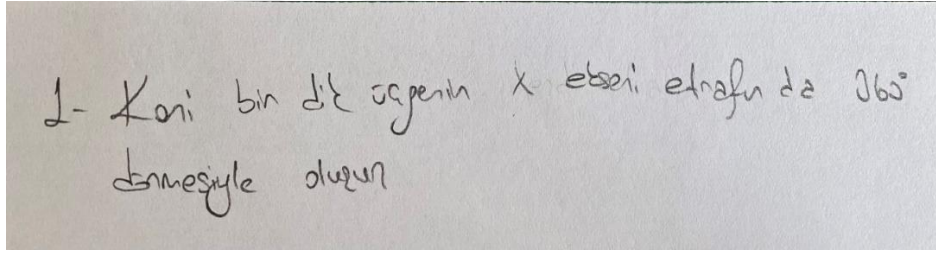 1- Koni bir dik üçgenin x ekseni etrafın da 360°
dönmesiyle oluşur